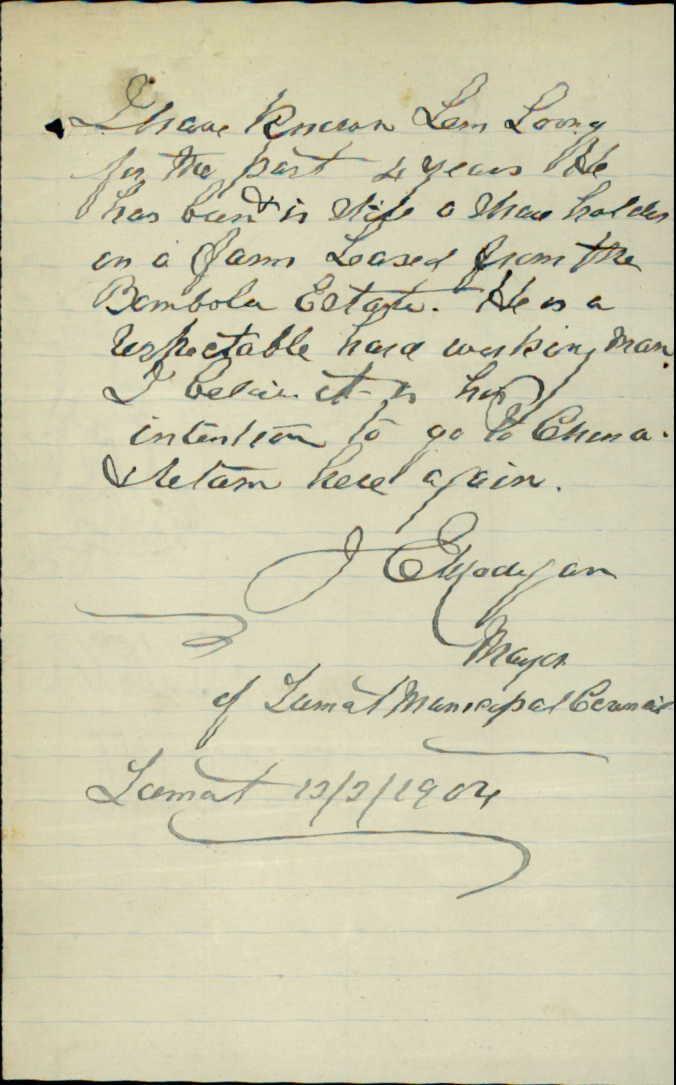 I have known Lem Loong
for the past 4 years He
has been & is still a Share holder
in a Farm Leased from the
Bombola Estate. He is a
respectable hard working man.
I belive it is his
intention to go to China.
& return here again.
J E Madigan
Mayor
of Tumut Municipal Council
Tumut 12/2/1904